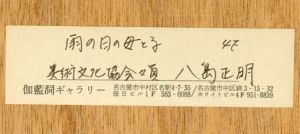 雨の日の母と子 4F
美術文化協会々員 八島正明
伽藍洞ギャラリー 名古屋市中村区名駅4-7-35/名古屋市中区錦3-15-32
毎日ビル1F 583-0088/ホワイトビル4F 951-8839